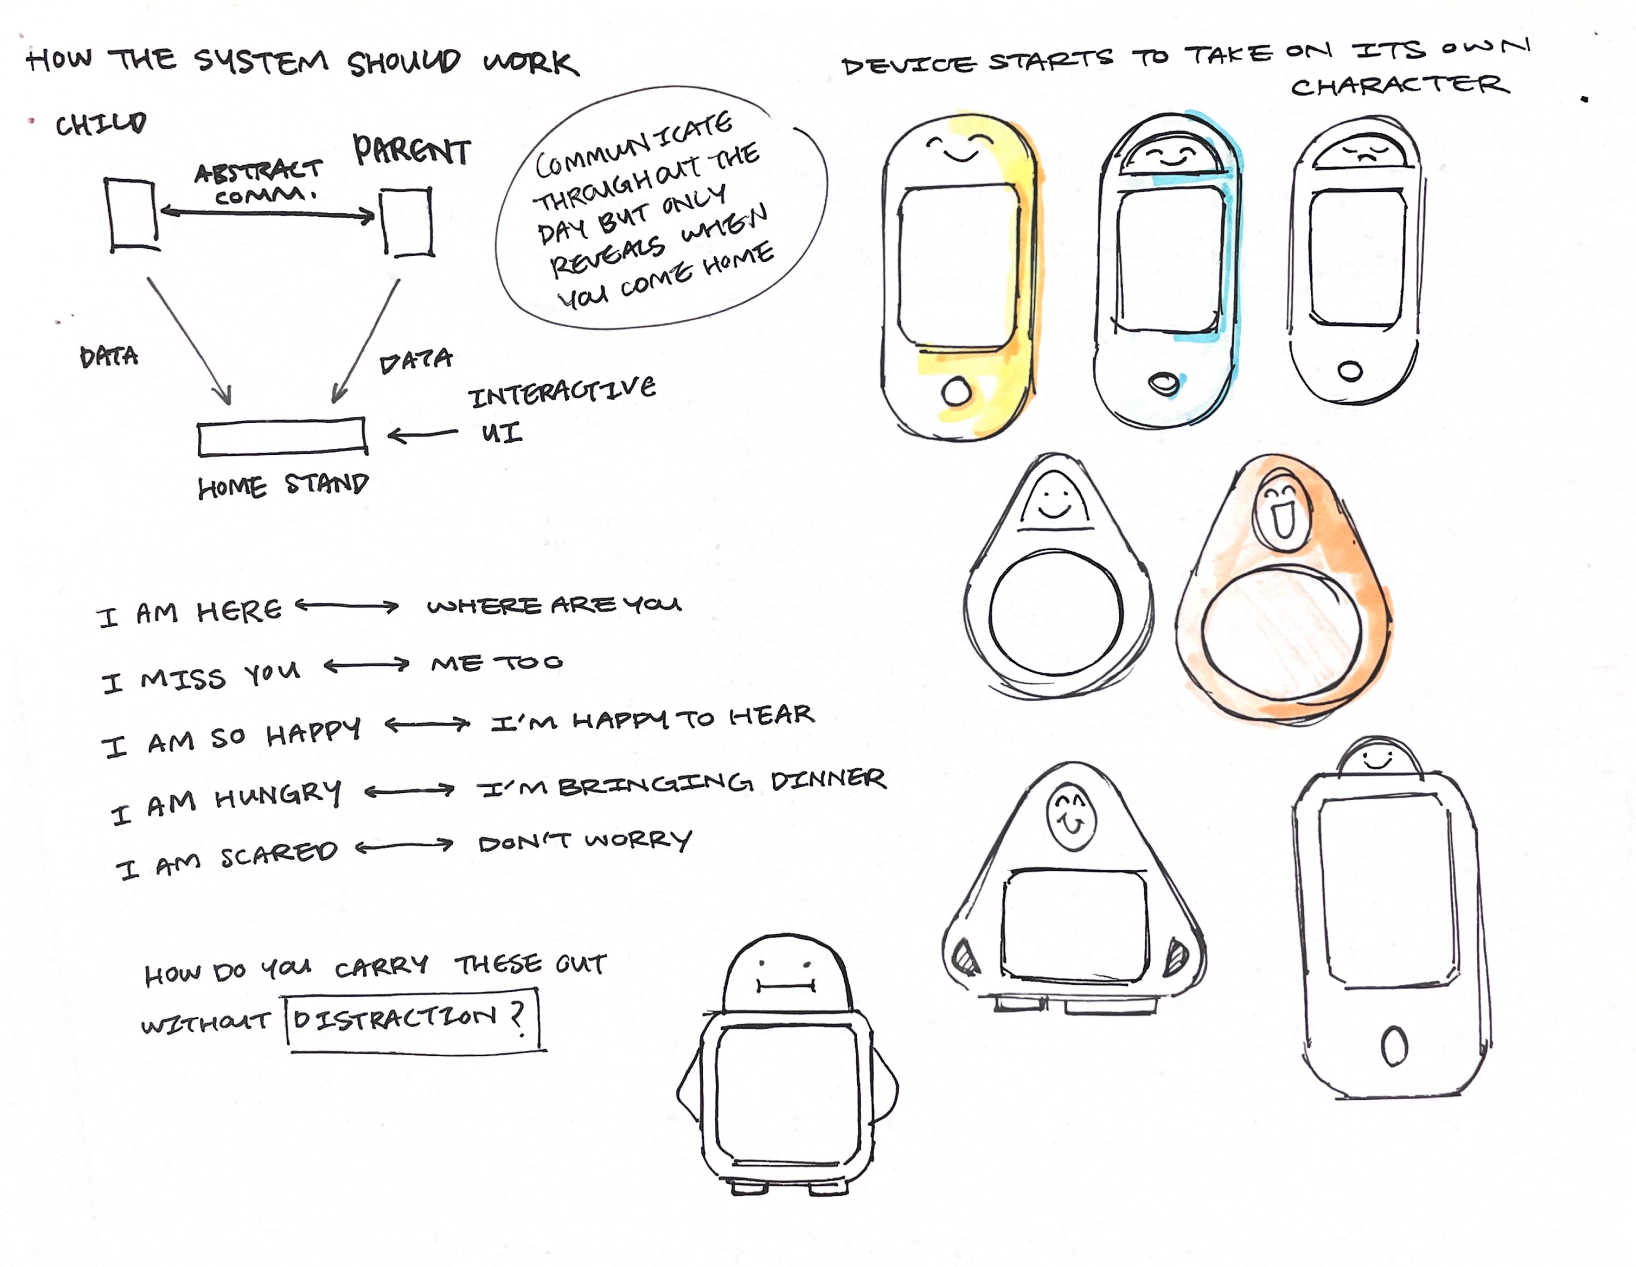 HOW THE SYSTEM SHOULD WORK
CHILD
PARENT
ABSTRACT
COMM.
DATA
DATA
INTERACTIVE
UI
HOME STAND
COMMUNICATE
THROUGHOUT THE
DAY BUT ONLY
REVEALS WHEN
YOU COME HOME
I AM HERE ⟷ WHERE ARE YOU
I MISS YOU ⟷ ME TOO
I AM SO HAPPY ⟷ I'M HAPPY TO HEAR
I AM HUNGRY ⟷ I'M BRINGING DINNER
I AM SCARED ⟷ DON'T WORRY
HOW DO YOU CARRY THESE OUT
WITHOUT DISTRACTION?
DEVICE STARTS TO TAKE ON ITS OWN
CHARACTER